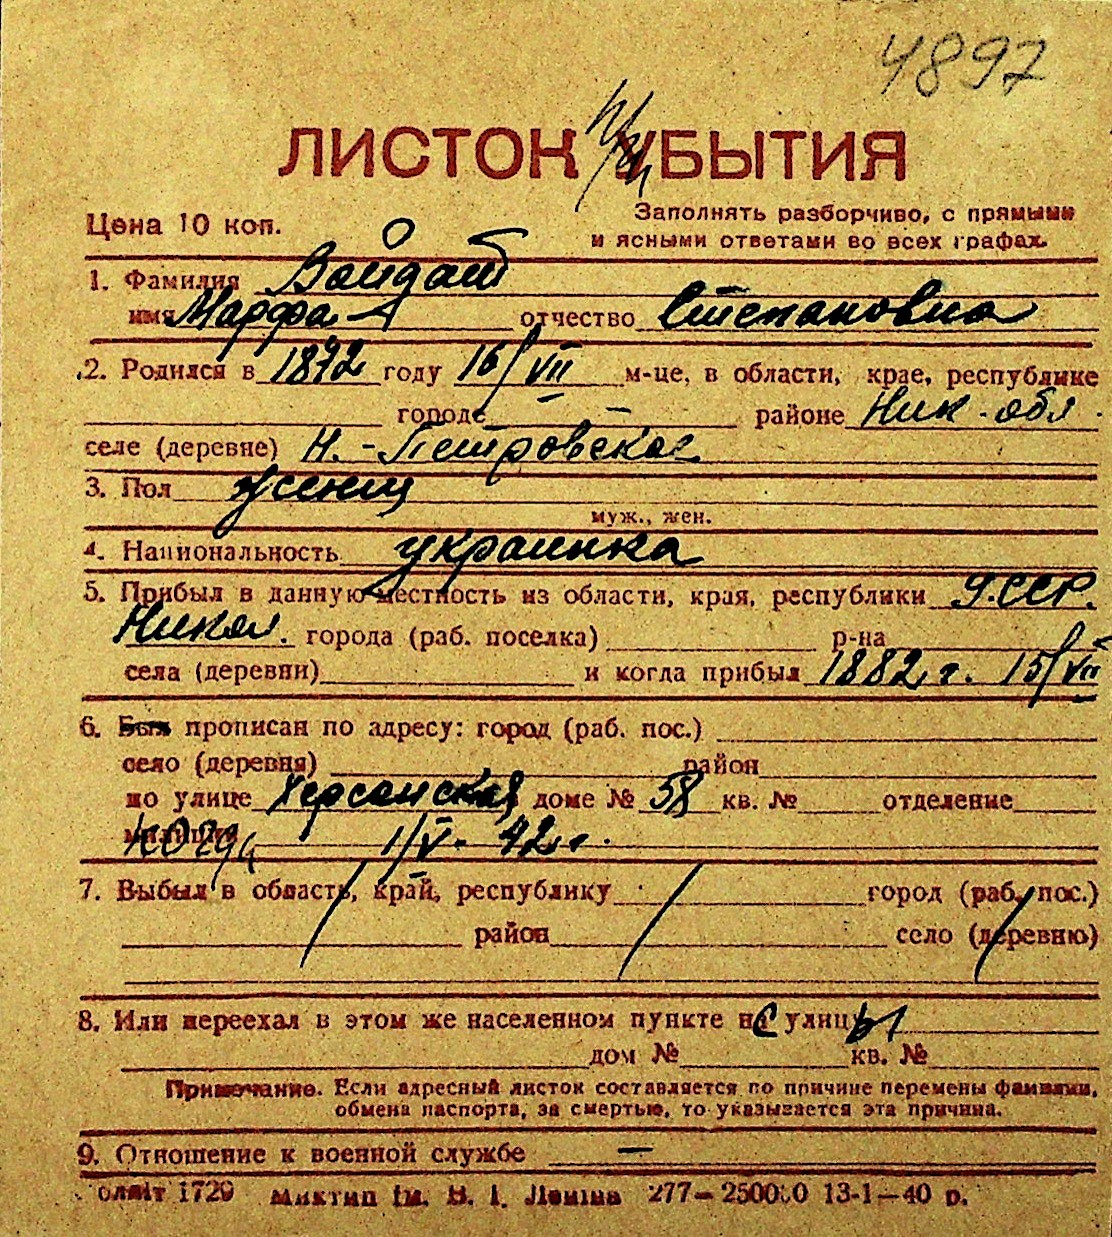 4897
ЛИСТОК УБЫТИЯ
Цена 10 коп.
Заполнять разборчиво, с прямыми
и ясными ответами во всех графах.
1. Фамилия Войдат
имя Марфа отчество Степановна
2. Родился в 1892 году 16/VII м-це, в области, крае, республике
городе — районе Ник. обл.
селе (деревне) Н.-Петровское
3. Пол женщ
муж., жен.
4. Национальность украинка
5. Прибыл в данную местность из области, края, республики УССР.
Никол. города (раб. поселка) р-на
села (деревни) и когда прибыл 1882 г. 15/VII
6. Был прописан по адресу: город (раб. пос.)
село (деревня) район
по улице Херсонская доме № 58 кв. № отделение
милиции 1/V- 42 г.
7. Выбыл в область, край, республику город (раб. пос.)
район село (деревню)
8. Или переехал в этом же населенном пункте на улицу
дом № кв. №
Примечание. Если адресный листок составляется по причине перемены фамилии,
обмена паспорта, за смертью, то указывается эта причина.
9. Отношение к военной службе —
олліт 1729 Миктип ім. В. І. Леніна 277—250000 13-1—40 р.